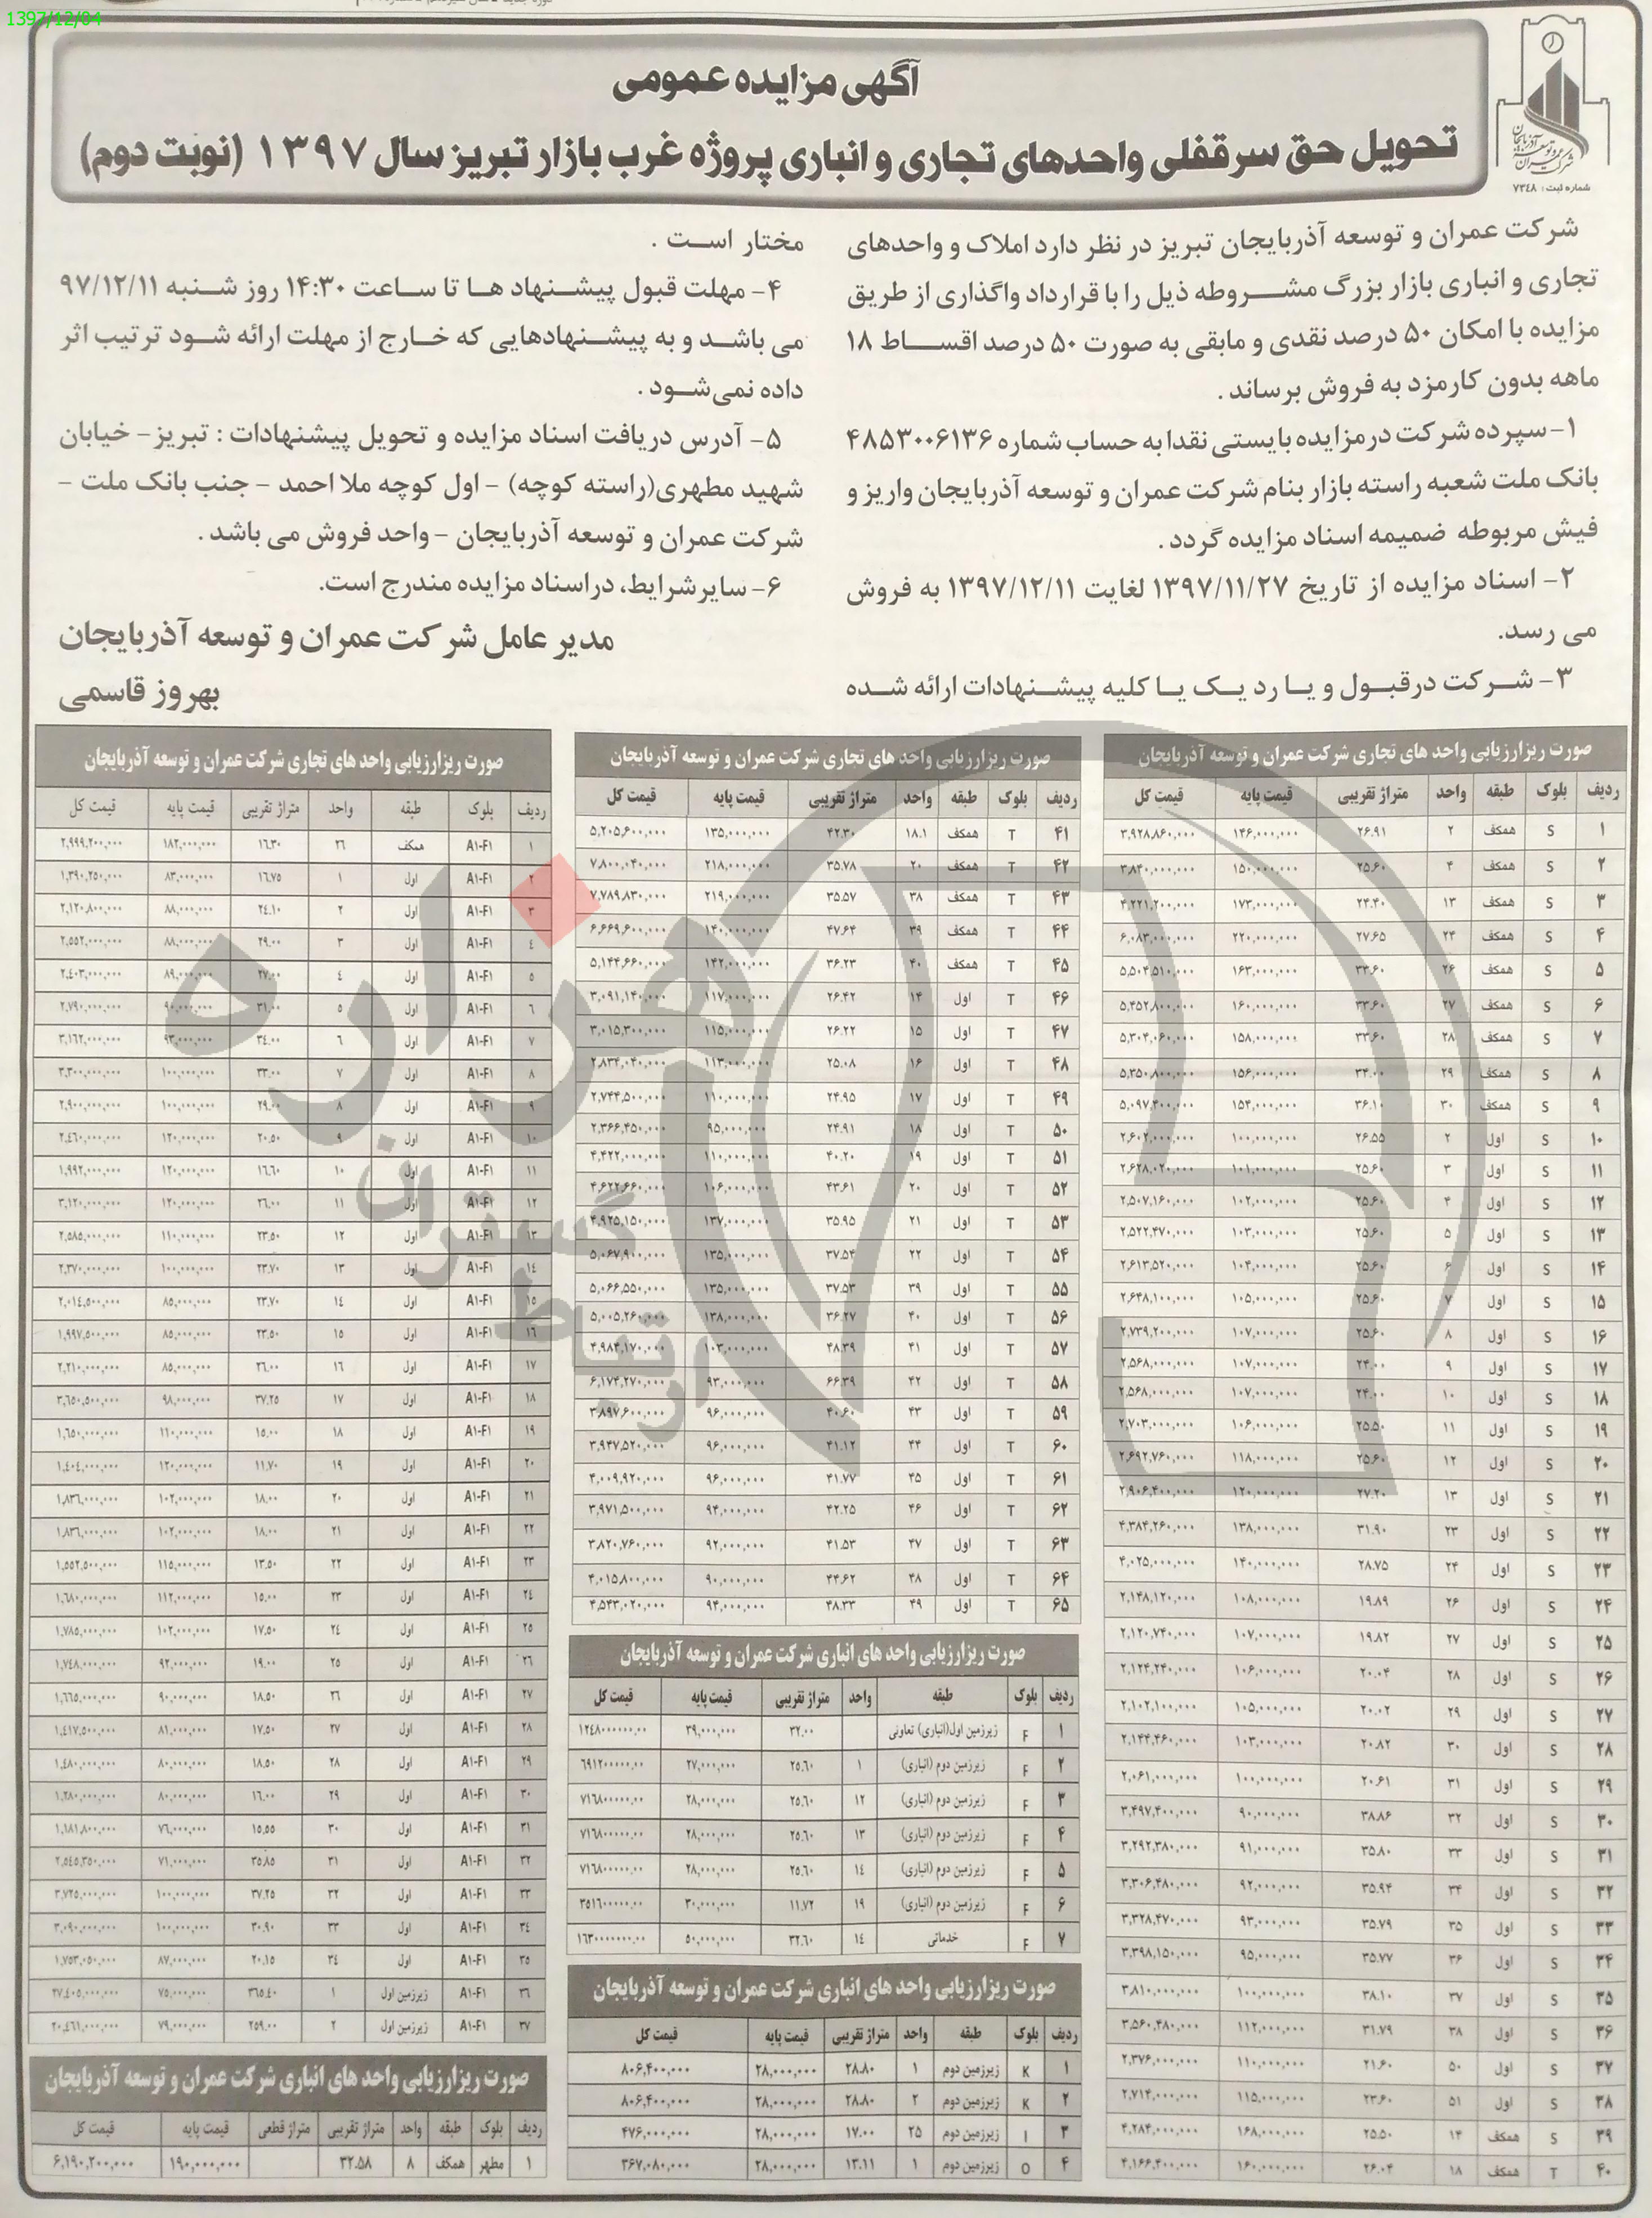 1397/12/04
آگهی مزایده عمومی
تحویل حق سرقفلی واحدهای تجاری و انباری پروژه غرب بازار تبریز سال ۱۳۹۷ (نوبت دوم)
شماره ثبت: ۷۳۴۸
شرکت عمران و توسعه آذربایجان تبریز در نظر دارد املاک و واحدهای
تجاری و انباری بازار بزرگ مشروطه ذیل را با قرارداد واگذاری از طریق
مزایده با امکان ۵۰ درصد نقدی و مابقی به صورت ۵۰ درصد اقساط ۱۸
ماهه بدون کارمزد به فروش برساند.
۱- سپرده شرکت در مزایده بایستی نقدا به حساب شماره ۴۸۵۳۰۰۶۱۳۶
بانک ملت شعبه راسته بازار بنام شرکت عمران و توسعه آذربایجان واریز و
فیش مربوطه ضمیمه اسناد مزایده گردد.
۲- اسناد مزایده از تاریخ ۱۳۹۷/۱۱/۲۷ لغایت ۱۳۹۷/۱۲/۱۱ به فروش
می رسد.
۳- شرکت در قبول و یا رد یک یا کلیه پیشنهادات ارائه شده
مختار است.
۴- مهلت قبول پیشنهاد ها تا ساعت ۱۴:۳۰ روز شنبه ۹۷/۱۲/۱۱
می باشد و به پیشنهادهایی که خارج از مهلت ارائه شود ترتیب اثر
داده نمی‌شود.
۵- آدرس دریافت اسناد مزایده و تحویل پیشنهادات: تبریز- خیابان
شهید مطهری(راسته کوچه) - اول کوچه ملا احمد - جنب بانک ملت -
شرکت عمران و توسعه آذربایجان - واحد فروش می باشد.
۶- سایر شرایط، در اسناد مزایده مندرج است.
مدیر عامل شرکت عمران و توسعه آذربایجان
بهروز قاسمی
صورت ریزارزیابی واحد های تجاری شرکت عمران و توسعه آذربایجان
ردیف بلوک طبقه واحد متراژ تقریبی قیمت پایه قیمت کل
۱ S همکف ۲ ۲۶.۹۱ ۱۴۶,۰۰۰,۰۰۰ ۳,۹۲۸,۸۶۰,۰۰۰
۲ S همکف ۴ ۲۵.۶۰ ۱۵۰,۰۰۰,۰۰۰ ۳,۸۴۰,۰۰۰,۰۰۰
۳ S همکف ۱۳ ۲۴.۴۰ ۱۷۳,۰۰۰,۰۰۰ ۴,۲۲۱,۲۰۰,۰۰۰
۴ S همکف ۲۴ ۲۷.۶۵ ۲۲۰,۰۰۰,۰۰۰ ۶,۰۸۳,۰۰۰,۰۰۰
۵ S همکف ۲۶ ۳۳.۶۰ ۱۶۳,۰۰۰,۰۰۰
۶ S همکف ۲۷ ۳۳.۶۰ ۱۶۰,۰۰۰,۰۰۰
۷ S همکف ۲۸ ۳۳.۶۰ ۱۵۸,۰۰۰,۰۰۰
۸ S همکف ۲۹ ۳۴.۰۰ ۱۵۶,۰۰۰,۰۰۰
۹ S همکف ۳۰ ۳۶.۱۰ ۱۵۴,۰۰۰,۰۰۰
۱۰ S اول ۲ ۲۶.۵۵ ۱۰۰,۰۰۰,۰۰۰
۱۱ S اول ۳ ۲۵.۶۰ ۱۰۱,۰۰۰,۰۰۰
۱۲ S اول ۴ ۲۵.۶۰ ۱۰۲,۰۰۰,۰۰۰ ۲,۵۰۷,۱۶۰,۰۰۰
۱۳ S اول ۵ ۲۵.۶۰ ۱۰۳,۰۰۰,۰۰۰ ۲,۵۲۲,۴۷۰,۰۰۰
۱۴ S اول ۶ ۲۵.۶۰ ۱۰۴,۰۰۰,۰۰۰ ۲,۶۱۳,۵۲۰,۰۰۰
۱۵ S اول ۷ ۲۵.۶۰ ۱۰۵,۰۰۰,۰۰۰ ۲,۶۴۸,۱۰۰,۰۰۰
۱۶ S اول ۸ ۲۵.۶۰ ۱۰۷,۰۰۰,۰۰۰ ۲,۷۳۹,۲۰۰,۰۰۰
۱۷ S اول ۹ ۲۴.۰۰ ۱۰۷,۰۰۰,۰۰۰ ۲,۵۶۸,۰۰۰,۰۰۰
۱۸ S اول ۱۰ ۲۴.۰۰ ۱۰۷,۰۰۰,۰۰۰ ۲,۵۶۸,۰۰۰,۰۰۰
۱۹ S اول ۱۱ ۲۵.۵۰ ۱۰۶,۰۰۰,۰۰۰ ۲,۷۰۳,۰۰۰,۰۰۰
۲۰ S اول ۱۲ ۲۵.۶۰ ۱۱۸,۰۰۰,۰۰۰ ۲,۶۹۲,۷۶۰,۰۰۰
۲۱ S اول ۱۳ ۲۷.۲۰ ۱۲۰,۰۰۰,۰۰۰ ۲,۹۰۶,۴۰۰,۰۰۰
۲۲ S اول ۲۳ ۳۱.۹۰ ۱۳۸,۰۰۰,۰۰۰ ۴,۳۸۴,۲۶۰,۰۰۰
۲۳ S اول ۲۴ ۲۸.۷۵ ۱۴۰,۰۰۰,۰۰۰ ۴,۰۲۵,۰۰۰,۰۰۰
۲۴ S اول ۲۶ ۱۹.۸۹ ۱۰۸,۰۰۰,۰۰۰ ۲,۱۴۸,۱۲۰,۰۰۰
۲۵ S اول ۲۷ ۱۹.۸۲ ۱۰۷,۰۰۰,۰۰۰ ۲,۱۲۰,۷۴۰,۰۰۰
۲۶ S اول ۲۸ ۲۰.۰۴ ۱۰۶,۰۰۰,۰۰۰ ۲,۱۲۴,۲۴۰,۰۰۰
۲۷ S اول ۲۹ ۲۰.۰۲ ۱۰۵,۰۰۰,۰۰۰ ۲,۱۰۲,۱۰۰,۰۰۰
۲۸ S اول ۳۰ ۲۰.۸۲ ۱۰۳,۰۰۰,۰۰۰ ۲,۱۴۴,۴۶۰,۰۰۰
۲۹ S اول ۳۱ ۲۰.۶۱ ۱۰۰,۰۰۰,۰۰۰ ۲,۰۶۱,۰۰۰,۰۰۰
۳۰ S اول ۳۲ ۳۸.۸۶ ۹۰,۰۰۰,۰۰۰ ۳,۴۹۷,۴۰۰,۰۰۰
۳۱ S اول ۳۳ ۳۵.۸۰ ۹۱,۰۰۰,۰۰۰ ۳,۲۹۲,۳۸۰,۰۰۰
۳۲ S اول ۳۴ ۳۵.۹۴ ۹۲,۰۰۰,۰۰۰ ۳,۳۰۶,۴۸۰,۰۰۰
۳۳ S اول ۳۵ ۳۵.۷۹ ۹۳,۰۰۰,۰۰۰ ۳,۳۲۸,۴۷۰,۰۰۰
۳۴ S اول ۳۶ ۳۵.۷۷ ۹۵,۰۰۰,۰۰۰ ۳,۳۹۸,۱۵۰,۰۰۰
۳۵ S اول ۳۷ ۳۸.۱۰ ۱۰۰,۰۰۰,۰۰۰ ۳,۸۱۰,۰۰۰,۰۰۰
۳۶ S اول ۳۸ ۳۱.۷۹ ۱۱۲,۰۰۰,۰۰۰ ۳,۵۶۰,۴۸۰,۰۰۰
۳۷ S اول ۵۰ ۲۱.۶۰ ۱۱۰,۰۰۰,۰۰۰ ۲,۳۷۶,۰۰۰,۰۰۰
۳۸ S اول ۵۱ ۲۳.۶۰ ۱۱۵,۰۰۰,۰۰۰ ۲,۷۱۴,۰۰۰,۰۰۰
۳۹ S همکف ۱۴ ۲۵.۵۰ ۱۶۸,۰۰۰,۰۰۰ ۴,۲۸۴,۰۰۰,۰۰۰
۴۰ T همکف ۱۸ ۲۶.۰۴ ۱۶۰,۰۰۰,۰۰۰ ۴,۱۶۶,۴۰۰,۰۰۰
صورت ریزارزیابی واحد های تجاری شرکت عمران و توسعه آذربایجان
ردیف بلوک طبقه واحد متراژ تقریبی قیمت پایه قیمت کل
۴۱ T همکف ۱۸.۱ ۴۲.۳۰ ۱۳۵,۰۰۰,۰۰۰ ۵,۲۰۵,۶۰۰,۰۰۰
۴۲ T همکف ۲۰ ۳۵.۷۸ ۲۱۸,۰۰۰,۰۰۰ ۷,۸۰۰,۰۴۰,۰۰۰
۴۳ T همکف ۳۸ ۳۵.۵۷ ۲۱۹,۰۰۰,۰۰۰ ۷,۷۸۹,۸۳۰,۰۰۰
۴۴ T همکف ۳۹ ۴۷.۶۴ ۱۴۰,۰۰۰,۰۰۰ ۶,۶۶۹,۶۰۰,۰۰۰
۴۵ T همکف ۴۰ ۳۶.۲۳ ۱۴۲,۰۰۰,۰۰۰ ۵,۱۴۴,۶۶۰,۰۰۰
۴۶ T اول ۱۴ ۲۶.۴۲ ۱۱۷,۰۰۰,۰۰۰ ۳,۰۹۱,۱۴۰,۰۰۰
۴۷ T اول ۱۵ ۲۶.۲۲ ۱۱۵,۰۰۰,۰۰۰ ۳,۰۱۵,۳۰۰,۰۰۰
۴۸ T اول ۱۶ ۲۵.۰۸ ۱۱۳,۰۰۰,۰۰۰ ۲,۸۳۴,۰۴۰,۰۰۰
۴۹ T اول ۱۷ ۲۴.۹۵ ۱۱۰,۰۰۰,۰۰۰ ۲,۷۴۴,۵۰۰,۰۰۰
۵۰ T اول ۱۸ ۲۴.۹۱ ۹۵,۰۰۰,۰۰۰ ۲,۳۶۶,۴۵۰,۰۰۰
۵۱ T اول ۱۹ ۴۰.۲۰ ۱۱۰,۰۰۰,۰۰۰ ۴,۴۲۲,۰۰۰,۰۰۰
۵۲ T اول ۲۰ ۴۳.۶۱ ۱۰۶,۰۰۰,۰۰۰ ۴,۶۲۲,۶۶۰,۰۰۰
۵۳ T اول ۲۱ ۳۵.۹۵ ۱۳۷,۰۰۰,۰۰۰ ۴,۹۲۵,۱۵۰,۰۰۰
۵۴ T اول ۲۲ ۳۷.۵۴ ۱۳۵,۰۰۰,۰۰۰ ۵,۰۶۷,۹۰۰,۰۰۰
۵۵ T اول ۳۹ ۳۷.۵۳ ۱۳۵,۰۰۰,۰۰۰ ۵,۰۶۶,۵۵۰,۰۰۰
۵۶ T اول ۴۰ ۳۶.۲۷ ۱۳۸,۰۰۰,۰۰۰ ۵,۰۰۵,۲۶۰,۰۰۰
۵۷ T اول ۴۱ ۴۸.۳۹ ۱۰۳,۰۰۰,۰۰۰ ۴,۹۸۴,۱۷۰,۰۰۰
۵۸ T اول ۴۲ ۶۶.۳۹ ۹۳,۰۰۰,۰۰۰ ۶,۱۷۴,۲۷۰,۰۰۰
۵۹ T اول ۴۳ ۴۰.۶۰ ۹۶,۰۰۰,۰۰۰ ۳,۸۹۷,۶۰۰,۰۰۰
۶۰ T اول ۴۴ ۴۱.۱۲ ۹۶,۰۰۰,۰۰۰ ۳,۹۴۷,۵۲۰,۰۰۰
۶۱ T اول ۴۵ ۴۱.۷۷ ۹۶,۰۰۰,۰۰۰ ۴,۰۰۹,۹۲۰,۰۰۰
۶۲ T اول ۴۶ ۴۲.۲۵ ۹۴,۰۰۰,۰۰۰ ۳,۹۷۱,۵۰۰,۰۰۰
۶۳ T اول ۴۷ ۴۱.۵۳ ۹۲,۰۰۰,۰۰۰ ۳,۸۲۰,۷۶۰,۰۰۰
۶۴ T اول ۴۸ ۴۴.۶۲ ۹۰,۰۰۰,۰۰۰ ۴,۰۱۵,۸۰۰,۰۰۰
۶۵ T اول ۴۹ ۴۸.۳۳ ۹۴,۰۰۰,۰۰۰ ۴,۵۴۳,۰۲۰,۰۰۰
صورت ریزارزیابی واحد های انباری شرکت عمران و توسعه آذربایجان
ردیف بلوک طبقه واحد متراژ تقریبی قیمت پایه قیمت کل
۱ F زیرزمین اول(انباری) تعاونی ۳۲.۰۰ ۳۹,۰۰۰,۰۰۰ ۱۲۴۸۰۰۰۰۰۰.۰۰
۲ F زیرزمین دوم (انباری) ۱ ۲۵.۶۰ ۲۷,۰۰۰,۰۰۰ ۶۹۱۲۰۰۰۰۰.۰۰
۳ F زیرزمین دوم (انباری) ۱۲ ۲۵.۶۰ ۲۸,۰۰۰,۰۰۰ ۷۱۶۸۰۰۰۰۰.۰۰
۴ F زیرزمین دوم (انباری) ۱۳ ۲۵.۶۰ ۲۸,۰۰۰,۰۰۰ ۷۱۶۸۰۰۰۰۰.۰۰
۵ F زیرزمین دوم (انباری) ۱۴ ۲۵.۶۰ ۲۸,۰۰۰,۰۰۰ ۷۱۶۸۰۰۰۰۰.۰۰
۶ F زیرزمین دوم (انباری) ۱۹ ۱۱.۷۲ ۳۰,۰۰۰,۰۰۰ ۳۵۱۶۰۰۰۰۰.۰۰
۷ F خدماتی ۱۴ ۳۲.۶۰ ۵۰,۰۰۰,۰۰۰ ۱۶۳۰۰۰۰۰۰۰.۰۰
صورت ریزارزیابی واحد های انباری شرکت عمران و توسعه آذربایجان
ردیف بلوک طبقه واحد متراژ تقریبی قیمت پایه قیمت کل
۱ K زیرزمین دوم ۱ ۲۸.۸۰ ۲۸,۰۰۰,۰۰۰ ۸۰۶,۴۰۰,۰۰۰
۲ K زیرزمین دوم ۲ ۲۸.۸۰ ۲۸,۰۰۰,۰۰۰ ۸۰۶,۴۰۰,۰۰۰
۳ I زیرزمین دوم ۲۵ ۱۷.۰۰ ۲۸,۰۰۰,۰۰۰ ۴۷۶,۰۰۰,۰۰۰
۴ O زیرزمین دوم ۱ ۱۳.۱۱ ۲۸,۰۰۰,۰۰۰ ۳۶۷,۰۸۰,۰۰۰
صورت ریزارزیابی واحد های تجاری شرکت عمران و توسعه آذربایجان
ردیف بلوک طبقه واحد متراژ تقریبی قیمت پایه قیمت کل
۱ A۱-F۱ همکف ۲۶ ۱۶.۳۰ ۱۸۴,۰۰۰,۰۰۰ ۲,۹۹۹,۲۰۰,۰۰۰
۲ A۱-F۱ اول ۱ ۱۶.۷۵ ۸۳,۰۰۰,۰۰۰ ۱,۳۹۰,۲۵۰,۰۰۰
۳ A۱-F۱ اول ۲ ۲۴.۱۰ ۸۸,۰۰۰,۰۰۰ ۲,۱۲۰,۸۰۰,۰۰۰
۴ A۱-F۱ اول ۳ ۲۹.۰۰ ۸۸,۰۰۰,۰۰۰ ۲,۵۵۲,۰۰۰,۰۰۰
۵ A۱-F۱ اول ۴ ۲۷.۰۰ ۸۹,۰۰۰,۰۰۰ ۲,۴۰۳,۰۰۰,۰۰۰
۶ A۱-F۱ اول ۵ ۳۱.۰۰ ۹۰,۰۰۰,۰۰۰ ۲,۷۹۰,۰۰۰,۰۰۰
۷ A۱-F۱ اول ۶ ۳۴.۰۰ ۹۳,۰۰۰,۰۰۰ ۳,۱۶۲,۰۰۰,۰۰۰
۸ A۱-F۱ اول ۷ ۳۳.۰۰ ۱۰۰,۰۰۰,۰۰۰ ۳,۳۰۰,۰۰۰,۰۰۰
۹ A۱-F۱ اول ۸ ۲۹.۰۰ ۱۰۰,۰۰۰,۰۰۰ ۲,۹۰۰,۰۰۰,۰۰۰
۱۰ A۱-F۱ اول ۹ ۲۰.۵۰ ۱۲۰,۰۰۰,۰۰۰ ۲,۴۶۰,۰۰۰,۰۰۰
۱۱ A۱-F۱ اول ۱۰ ۱۶.۶۰ ۱۲۰,۰۰۰,۰۰۰ ۱,۹۹۲,۰۰۰,۰۰۰
۱۲ A۱-F۱ اول ۱۱ ۲۶.۰۰ ۱۲۰,۰۰۰,۰۰۰ ۳,۱۲۰,۰۰۰,۰۰۰
۱۳ A۱-F۱ اول ۱۲ ۲۳.۵۰ ۱۱۰,۰۰۰,۰۰۰ ۲,۵۸۵,۰۰۰,۰۰۰
۱۴ A۱-F۱ اول ۱۳ ۲۳.۷۰ ۱۰۰,۰۰۰,۰۰۰ ۲,۳۷۰,۰۰۰,۰۰۰
۱۵ A۱-F۱ اول ۱۴ ۲۳.۷۰ ۸۵,۰۰۰,۰۰۰ ۲,۰۱۴,۵۰۰,۰۰۰
۱۶ A۱-F۱ اول ۱۵ ۲۳.۵۰ ۸۵,۰۰۰,۰۰۰ ۱,۹۹۷,۵۰۰,۰۰۰
۱۷ A۱-F۱ اول ۱۶ ۲۶.۰۰ ۸۵,۰۰۰,۰۰۰ ۲,۲۱۰,۰۰۰,۰۰۰
۱۸ A۱-F۱ اول ۱۷ ۳۷.۲۵ ۹۸,۰۰۰,۰۰۰ ۳,۶۵۰,۵۰۰,۰۰۰
۱۹ A۱-F۱ اول ۱۸ ۱۵.۰۰ ۱۱۰,۰۰۰,۰۰۰ ۱,۶۵۰,۰۰۰,۰۰۰
۲۰ A۱-F۱ اول ۱۹ ۱۱.۷۰ ۱۲۰,۰۰۰,۰۰۰ ۱,۴۰۴,۰۰۰,۰۰۰
۲۱ A۱-F۱ اول ۲۰ ۱۸.۰۰ ۱۰۲,۰۰۰,۰۰۰ ۱,۸۳۶,۰۰۰,۰۰۰
۲۲ A۱-F۱ اول ۲۱ ۱۸.۰۰ ۱۰۲,۰۰۰,۰۰۰ ۱,۸۳۶,۰۰۰,۰۰۰
۲۳ A۱-F۱ اول ۲۲ ۱۳.۵۰ ۱۱۵,۰۰۰,۰۰۰ ۱,۵۵۲,۵۰۰,۰۰۰
۲۴ A۱-F۱ اول ۲۳ ۱۵.۰۰ ۱۱۲,۰۰۰,۰۰۰ ۱,۶۸۰,۰۰۰,۰۰۰
۲۵ A۱-F۱ اول ۲۴ ۱۷.۵۰ ۱۰۲,۰۰۰,۰۰۰ ۱,۷۸۵,۰۰۰,۰۰۰
۲۶ A۱-F۱ اول ۲۵ ۱۹.۰۰ ۹۲,۰۰۰,۰۰۰ ۱,۷۴۸,۰۰۰,۰۰۰
۲۷ A۱-F۱ اول ۲۶ ۱۸.۵۰ ۹۰,۰۰۰,۰۰۰ ۱,۶۶۵,۰۰۰,۰۰۰
۲۸ A۱-F۱ اول ۲۷ ۱۷.۵۰ ۸۱,۰۰۰,۰۰۰ ۱,۴۱۷,۵۰۰,۰۰۰
۲۹ A۱-F۱ اول ۲۸ ۱۸.۵۰ ۸۰,۰۰۰,۰۰۰ ۱,۴۸۰,۰۰۰,۰۰۰
۳۰ A۱-F۱ اول ۲۹ ۱۶.۰۰ ۸۰,۰۰۰,۰۰۰ ۱,۲۸۰,۰۰۰,۰۰۰
۳۱ A۱-F۱ اول ۳۰ ۱۵.۵۵ ۷۶,۰۰۰,۰۰۰ ۱,۱۸۱,۸۰۰,۰۰۰
۳۲ A۱-F۱ اول ۳۱ ۳۵.۸۵ ۷۱,۰۰۰,۰۰۰ ۲,۵۴۵,۳۵۰,۰۰۰
۳۳ A۱-F۱ اول ۳۲ ۳۷.۲۵ ۱۰۰,۰۰۰,۰۰۰ ۳,۷۲۵,۰۰۰,۰۰۰
۳۴ A۱-F۱ اول ۳۳ ۳۰.۹۰ ۱۰۰,۰۰۰,۰۰۰ ۳,۰۹۰,۰۰۰,۰۰۰
۳۵ A۱-F۱ اول ۳۴ ۲۰.۱۵ ۸۷,۰۰۰,۰۰۰ ۱,۷۵۳,۰۵۰,۰۰۰
۳۶ A۱-F۱ زیرزمین اول ۱ ۳۶۵.۴۰ ۷۵,۰۰۰,۰۰۰ ۲۷,۴۰۵,۰۰۰,۰۰۰
۳۷ A۱-F۱ زیرزمین اول ۲ ۲۵۹.۰۰ ۷۹,۰۰۰,۰۰۰ ۲۰,۴۶۱,۰۰۰,۰۰۰
صورت ریزارزیابی واحد های انباری شرکت عمران و توسعه آذربایجان
ردیف بلوک طبقه واحد متراژ تقریبی متراژ قطعی قیمت پایه قیمت کل
۱ مطهر همکف ۸ ۳۲.۵۸ ۱۹۰,۰۰۰,۰۰۰ ۶,۱۹۰,۲۰۰,۰۰۰